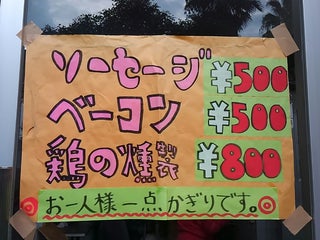 ソーセージ ¥500
ベーコン ¥500
鶏の燻製 ¥800
お一人様一点かぎりです。